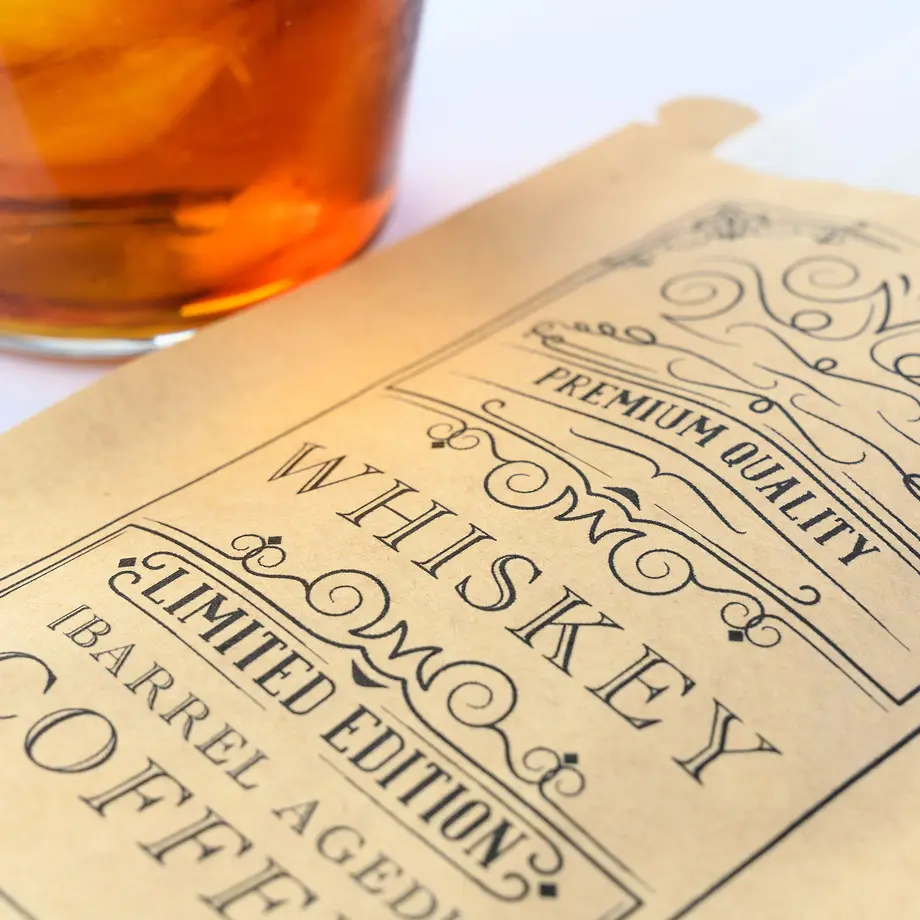 PREMIUM QUALITY
WHISKEY
LIMITED EDITION
[BARREL AGED]
COFFEE